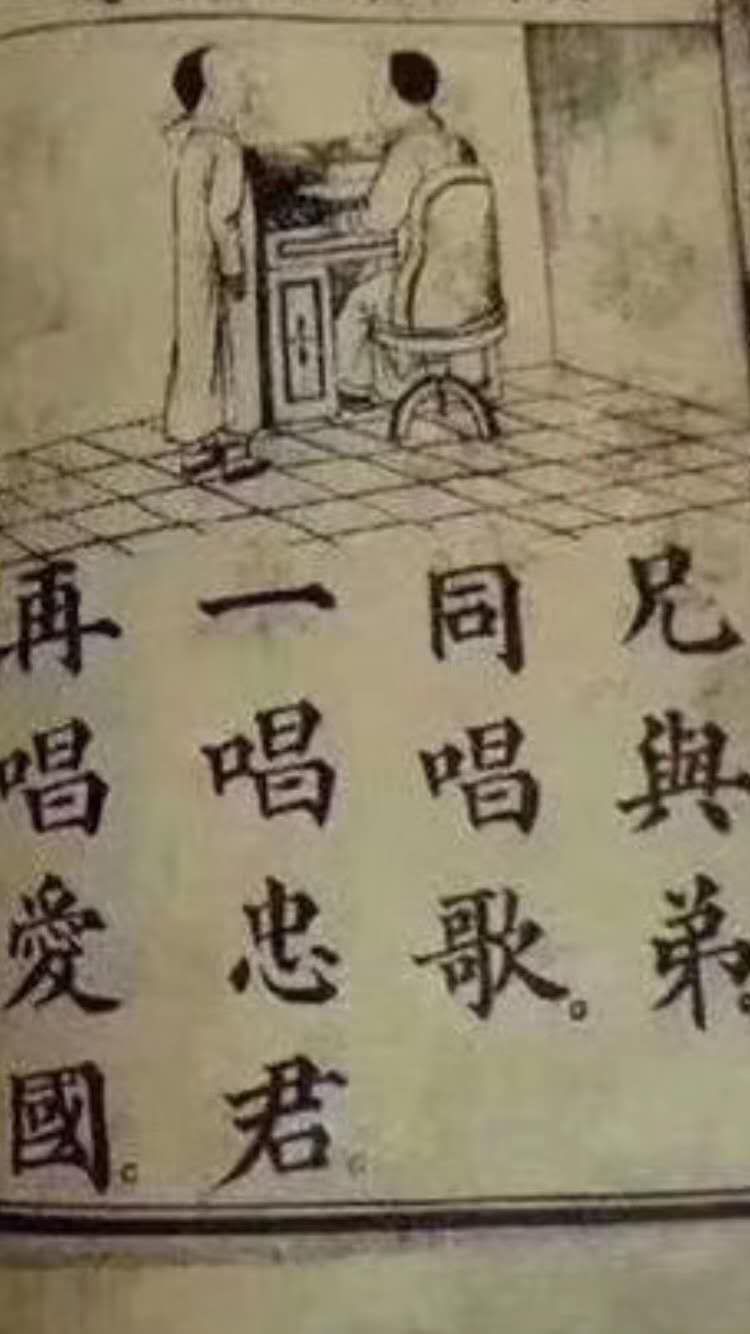 兄與弟。
同唱歌。
一唱忠君。
再唱愛國。